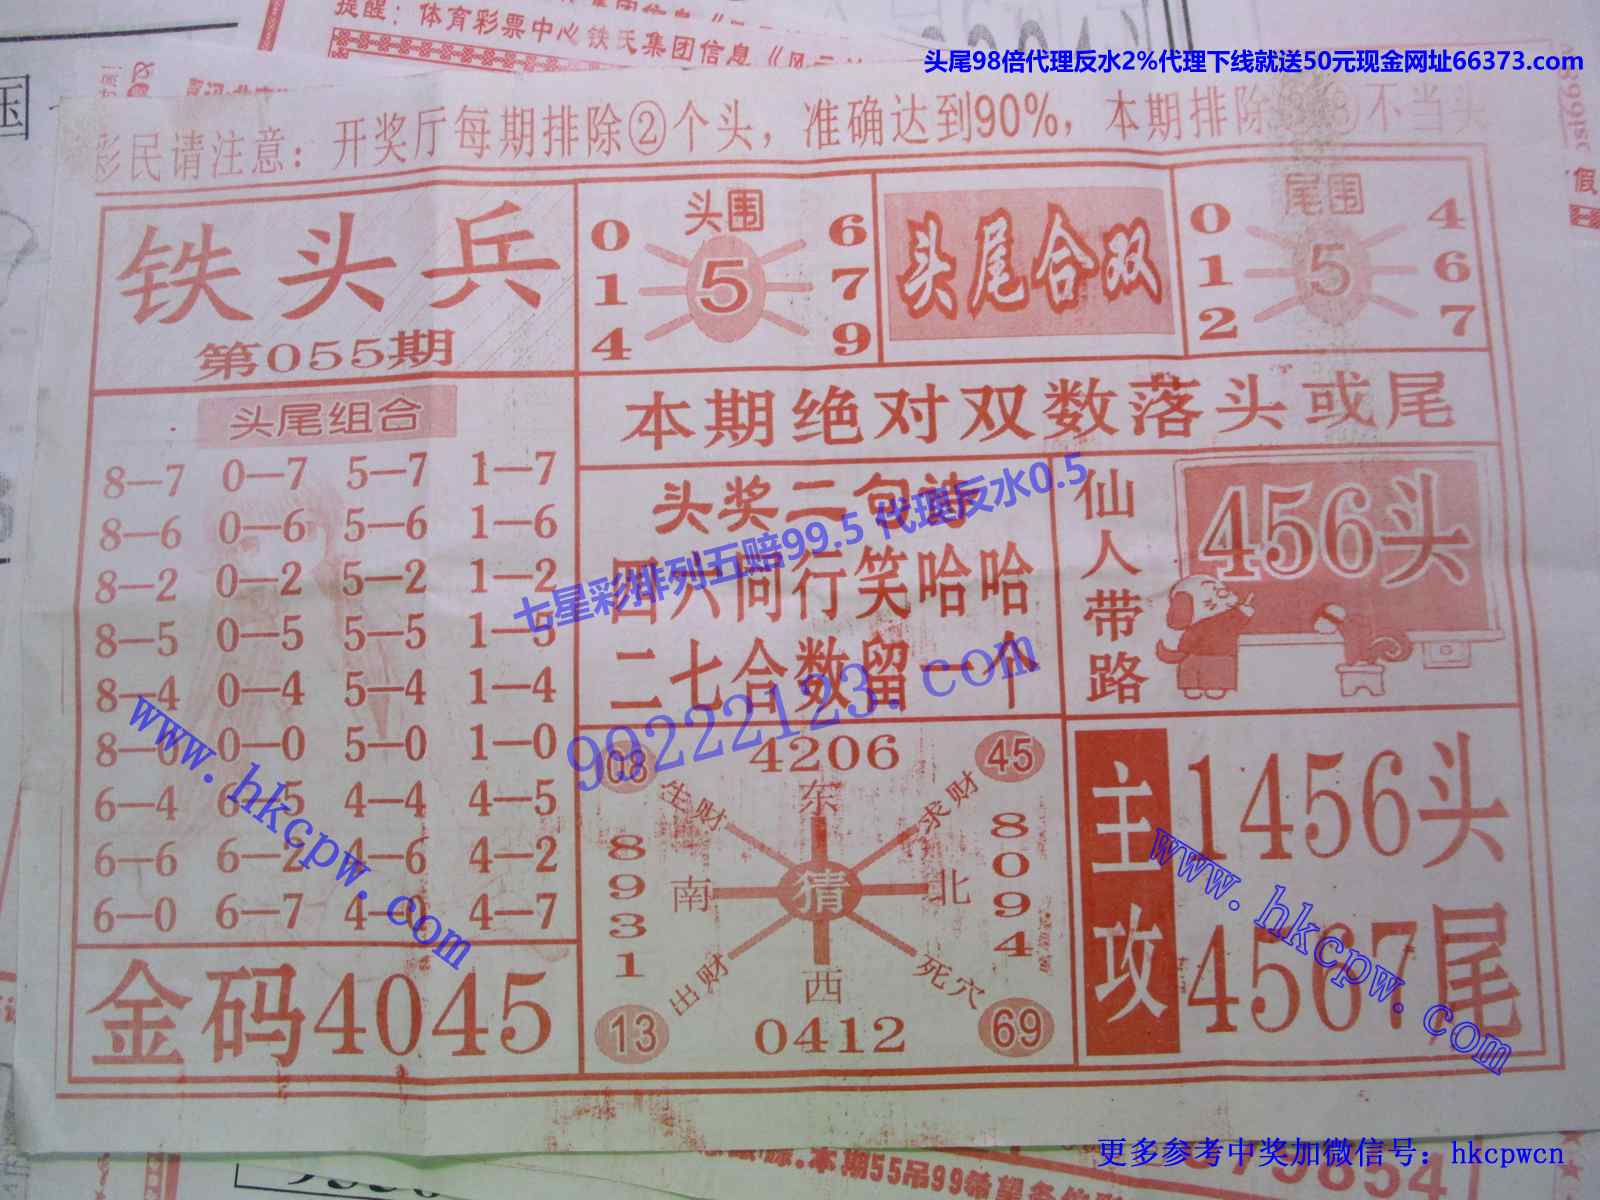 提醒：体育彩票中心铁氏集团信息《风云
头尾98倍代理反水2%代理下线就送50元现金网址66373.com
彩民请注意：开奖厅每期排除②个头，准确达到90%，本期排除
不当头
铁头兵
第055期
头围
0 6
1 5 7
4 9
头尾合双
尾围
0 4
1 5 6
2 7
本期绝对双数落头或尾
头尾组合
8—7 0—7 5—7 1—7
8—6 0—6 5—6 1—6
8—2 0—2 5—2 1—2
8—5 0—5 5—5 1—5
8—4 0—4 5—4 1—4
0—0 5—0 1—0
6—4 4—4 4—5
6—6 6—2 4—6 4—2
6—0 6—7 4—0 4—7
金码4045
头奖二句诗
四六同行笑哈哈
二七合数留一个
七星彩排列五赔99.5 代理反水0.5
90222123.com
仙人带路
456头
08 4206 45
生财 东 求财
8931 南 猜 北 8094
出财 西 死穴
13 0412 69
主攻
1456头
4567尾
www.hkcpw.com
www.hkcpw.com
本期55吊99希望各位彩
更多参考中奖加微信号：hkcpwcn